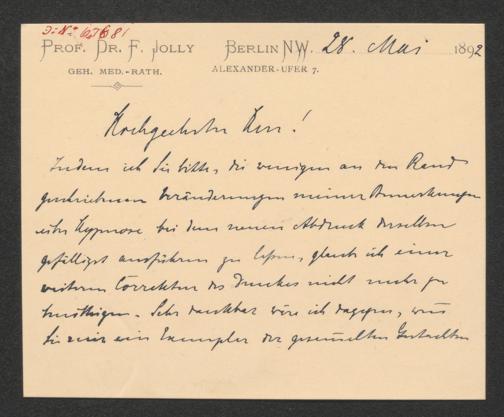 J. N: 67681
PROF. DR. F. JOLLY BERLIN NW. 28. Mai 1892
GEH. MED.-RATH. ALEXANDER-UFER 7.
Hochgeehrter Herr!
Indem ich Sie bitte, die wenigen an den Rand
geschriebenen Veränderungen meiner Bemerkungen
über Hypnose bei dem neuen Abdruck derselben
gefälligst ausführen zu lassen, glaube ich einer
weiteren Correktur des Druckes nicht mehr zu
benöthigen. Sehr dankbar wäre ich dagegen, wenn
Sie mir ein Exemplar der gesammelten Gutachten